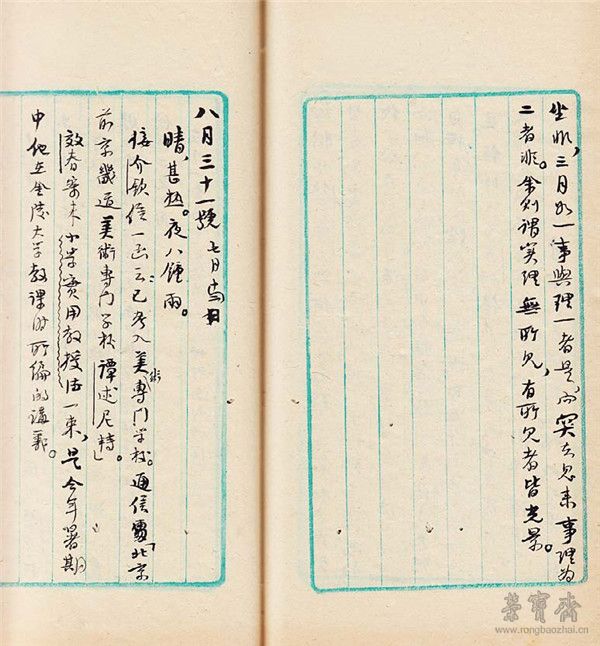 坐北，三月如一事與理一者是，而突出思來事理為
二者非。余則謂實理無所見，有所見者皆光景。
八月三十一號 七月十四日
晴，甚热。夜八鍾雨。
接介欽信一函云：已考入美術專門学校。通信處「北京
前京畿道美術專門学校譚述尼轉」。
效春寄来小学實用教授法一束，是今年暑期
中他在金陵大学教課時所編的講義。
榮寳齋
www.rongbaozhai.cn